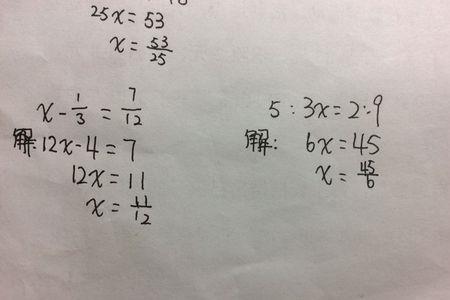 25x=53
x=53/25
x-1/3=7/12
解:12x-4=7
12x=11
x=11/12
5:3x=2:9
解:6x=45
x=45/6